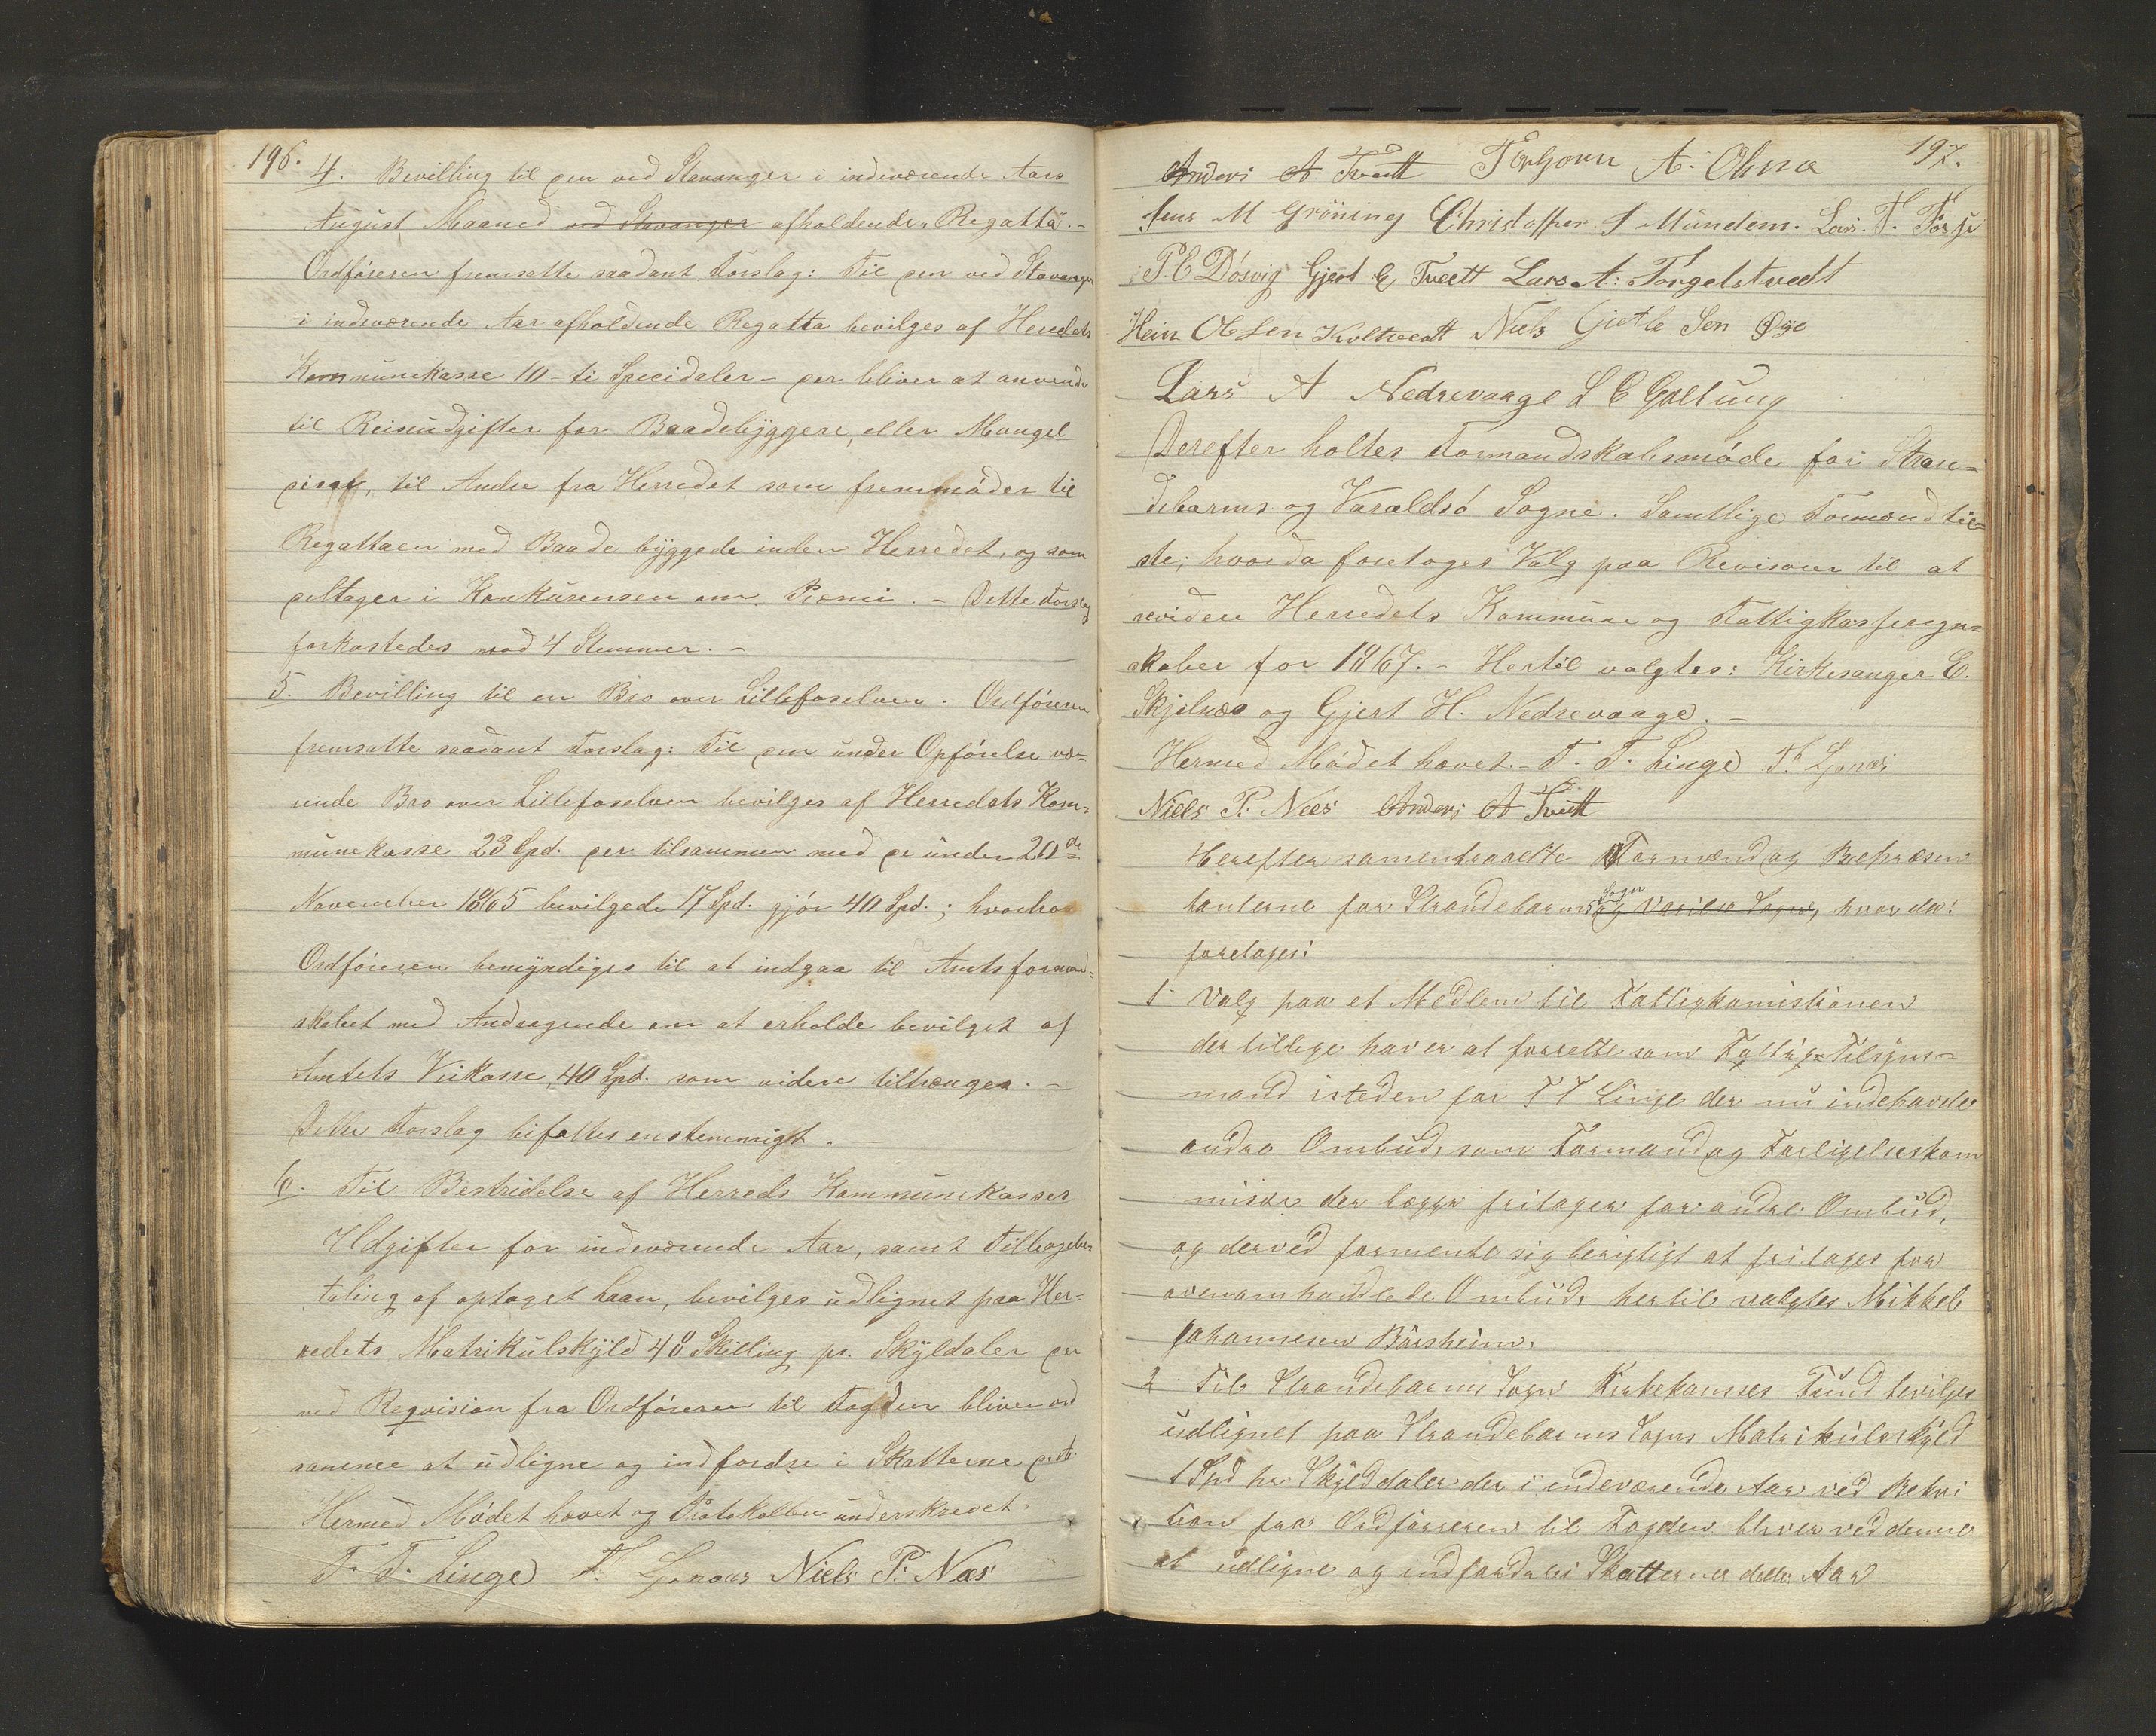 196.
4. Bevilling til den ved Stavanger i indeværende Aars
August Maaned ved Stavanger afholdende Regatta. -
Ordføreren fremsatte saadant Forslag: Til den ved Stavanger
i indeværende Aar afholdende Regatta bevilges af Herredets
Kommunekasse 10 - ti Specidaler - der bliver at anvende
til Reiseudgifter for Baadebyggere, eller Mangel
deraf, til Andre fra Herredet som fremmøder til
Regattaen med Baade byggede inden Herredet, og som
deltager i Konkurensen om Præmi. - Dette Forslag
forkastedes mod 4 Stemmer. -
5. Bevilling til en Bro over Lillefoselven. Ordføreren
fremsatte saadant Forslag: Til den under Opførelse væ=
rende Bro over Lillefoselven bevilges af Herredets Kom=
munekasse 23 Spd. der tilsammen med de under 20de
November 1865 bevilgede 17 Spd. gjør 40 Spd.; hvorhos
Ordføreren bemyndiges til at indgaa til Amtsformand=
skabet med Andragende om at erholde bevilget af
Amtets Veikasse, 40 Spd. som videre tiltrænges. -
Dette Forslag bifaltes enstemmigt. -
6. Til Bestridelse af Herreds Kommunekasses
Udgifter for indeværende Aar, samt Tilbagebe=
taling af optaget Laan, bevilges udlignet paa Her=
redets Matrikulskyld 40 Skilling pr. Skyldaler der
ved Reqvision fra Ordføreren til Fogden bliver ved
samme at udligne og indfordre i Skatterne d. A.
Hermed Mødet hævet og Protokollen underskrevet.
T. T. Linge T. Ljonæs Niels P. Næs
197.
Anders A Tveit Torbjorn A. Olma
Jens M Grøning Christoffer J Mundem. Lars. T. Fosse
P. C Døsvig Gjert G Tveitt Lars A: Torgelstvedt
Hein Olsen Koltvedt Niels Gietle Sen Øye
Lars A Nedrevaage L C Galtung
Derefter holtes Formandskabsmøde for Stran=
debarms og Varaldsø Sogne. Samtlige Formænd til=
ste; hvorda foretoges Valg paa Revisorer til at
revidere Herredets Kommune og Fattigkasseregn=
skaber for 1867. - Hertil valgtes: Kirkesanger E.
Skjelnæs og Gjert H. Nedrevaage. -
Hermed Mødet hævet. - T. T. Linge T. Ljonæs
Niels P. Næs Anders A Tveit
Herefter samentraadte Formænd og Repræsen
tanterne for Strandebarms Sogn og Varilsø Sogne, hvor da!
foretoges:
1 Valg paa et Medlem til Fattigkomistionen
der tillige haver at forrette som Fattig-Tilsyns=
mand isteden for T T Linge der nu indehavde
andre Ombud, som Formand og Forligelseskom
misær der begge fritager for andre Ombud,
og derved formente sig berigtigt at fritages for
ovenomhandlede Ombud, hertil valgtes Mikkel
Johannesen Børsheim.
2 Til Strandebarms Sogns Kirkekasses Fund bevilges
udlignet paa Strandebarms Sogns Matrikulskyld
1 Spd pr Skylddaler der i indeværende Aar ved Rekvi
tion fra Ordføreren til Fogden bliver ved denne
at udligne og indfordre i Skatterne dette Aar